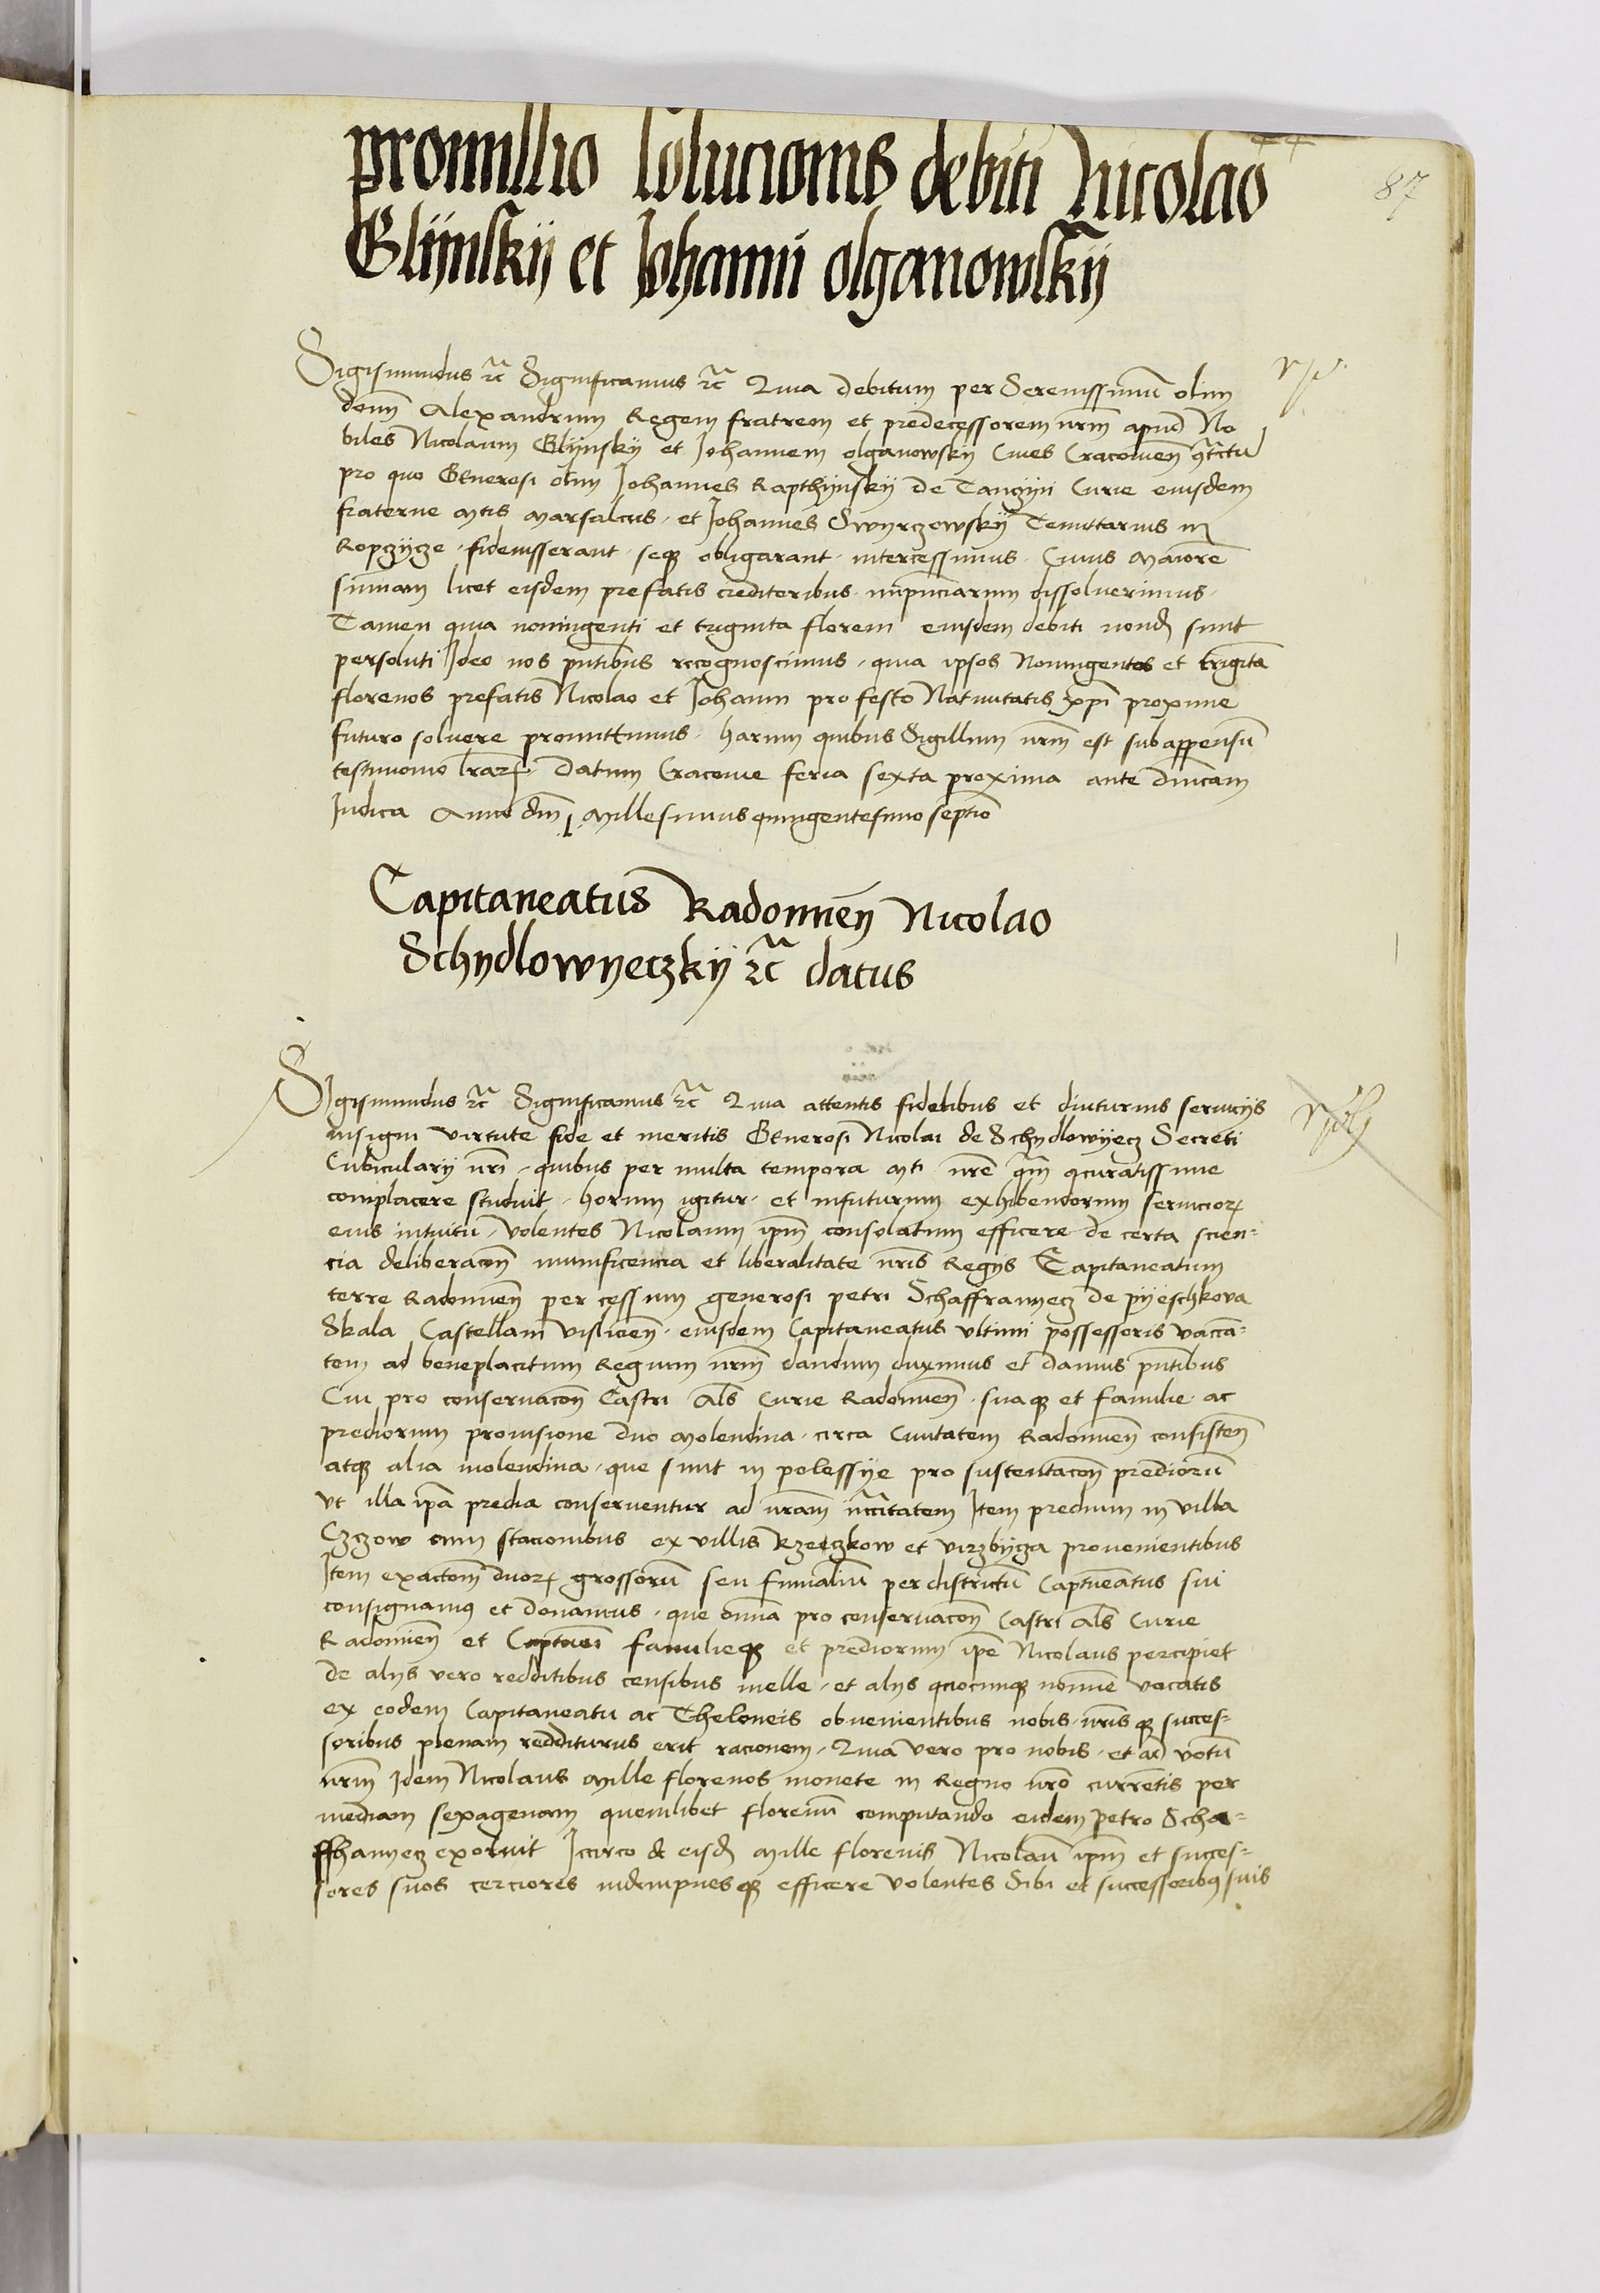 87
promissio solucionis debiti Nicolao
Glijnskij et Johanni olganowskij
Sigismundus rc̄ Significamus rc̄ Quia debitum per Serenissimū olim
dom̄ Alexandrum Regem fratrem et predecessorem nr̄m apud No
biles Nicolaum Glijnskij et Johannem olganowskij Cives Cracovien̄
pro quo Generosi olim Johannes Rapthijnskij de Tanczijn Curie eiusdem
fraterne Mtis Marsalcus et Johannes Swyrczowskij Tenutarius in
Ropczijcze fideiusserant seqꝫ obligarant intercessimus Cuius Maiorē
summam licet eisdem prefatis creditoribus dissolverimus
Tamen quia noningenti et triginta floreni eiusdem debiti nond sunt
persoluti Ideo nos pn̄tibus recognoscimus quia ipsos Noningentos et trigīta
florenos prefatis Nicolao et Johanni pro festo Nativitatis xp̄i proxime
futuro solvere promittimus harum quibus Sigillum nr̄m est subappensū
testimonio lr̄aꝝ Datum Cracovie feria sexta proxima ante Dn̄icam
Judica Anno dn̄i Millesimus quingentesimo septīo
Capitaneatus Radomien̄ Nicolao
Schydlowyeczkij rc̄ datus
Sigismundus rc̄ Significamus rc̄ Quia attentis fidelibus et diuturnis servicijs
insigni virtute fide et meritis Generosi Nicolai de Schydlowyecz Secreti
Cubicularij nr̄i quibus per multa tempora Mti nr̄e qm̄ accuratissime
complacere studuit horum igitur et infuturum exhibendorum servicioꝝ
eius intuitu volentes Nicolaum ipm̄ consolatum efficere de certa scien=
cia deliberacōn munificencia et liberalitate nr̄is Regijs Capitaneatum
terre Radomien̄ per cessum generosi petri Schaffranyecz de pyeschkova
Skala Castellani vislicien̄ eiusdem Capitaneatus ultimi possessoris vacan̄=
tem ad beneplacitum Regium nr̄m dandum duximus et damus pn̄tibus
Cui pro conservacōn Castri als Curie Radomien̄ suaqꝫ et familie ac
prediorum provisione duo Molendina circa Civitatem Radomien̄ consisten̄
atqꝫ alia molendina que sunt in polessije pro sustentacōn prediorū
ut illa ip̄a predia conserventur ad nr̄am necc̄itatem Item predium in villa
Czczow cum stacionibus ex villis Rzeczkow et virzbijcza provenientibus
Item exactōm duoꝝ grossorū seu fumaliū per districtū Capitneatus sui
consignamus et donamus que om̄ia pro conservacōn Castri als Curie
Radomien̄ et Captn̄ei familieqꝫ et prediorum ipē Nicolaus percipiet
de alijs vero redditibus censibus melle et alijs quocunqꝫ nomine vocatis
ex eodem Capitaneatu ac Theloneis obvenientibus nobis nr̄isqꝫ succes=
soribus plenam redditurus erit racionem Quia vero pro nobis et ad votū
nr̄m Idem Nicolaus Mille florenos monete in Regno nr̄o currentis per
mediam sexagenam quemlibet florenū computando eidem Petro Scha=
ffranyecz exolvit Iccirco de eisd Mille florenis Nicolaū ipm̄ et succes=
sores suos cerciores indempnesqꝫ efficere volentes Sibi et successoribus suis